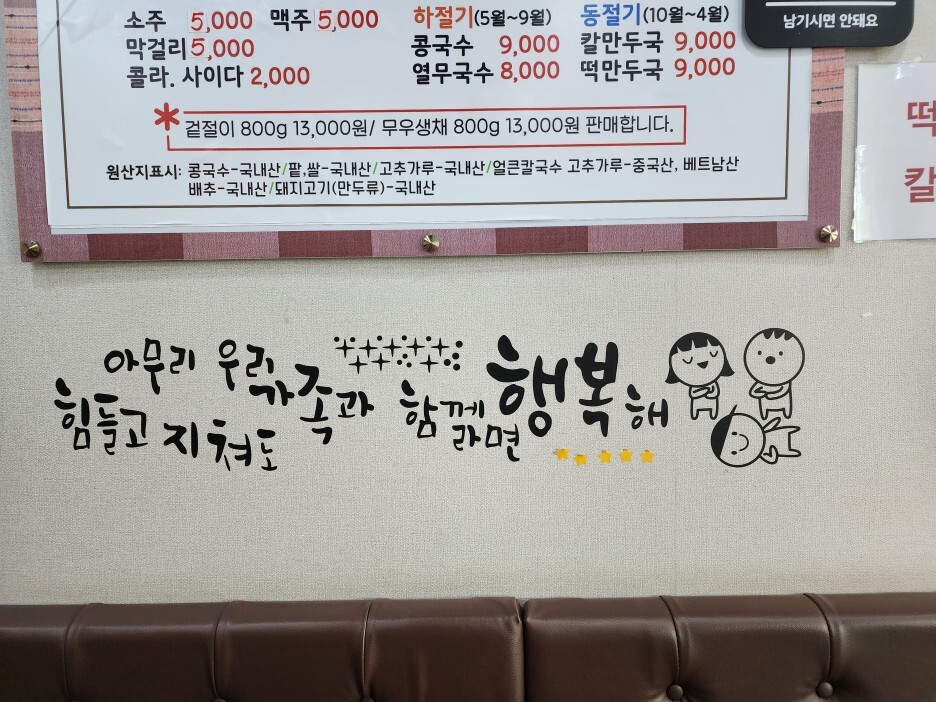 소주 5,000 맥주 5,000
막걸리 5,000
콜라. 사이다 2,000
하절기(5월~9월)
콩국수 9,000
열무국수 8,000
동절기(10월~4월)
칼만두국 9,000
떡만두국 9,000
남기시면 안돼요
*겉절이 800g 13,000원/ 무우생채 800g 13,000원 판매합니다.
원산지표시: 콩국수-국내산/팥,쌀-국내산/고추가루-국내산/얼큰칼국수 고추가루-중국산, 베트남산
배추-국내산/돼지고기(만두류)-국내산
떡
칼
아무리
힘들고 지쳐도
우리 가족과
함께라면
행복해